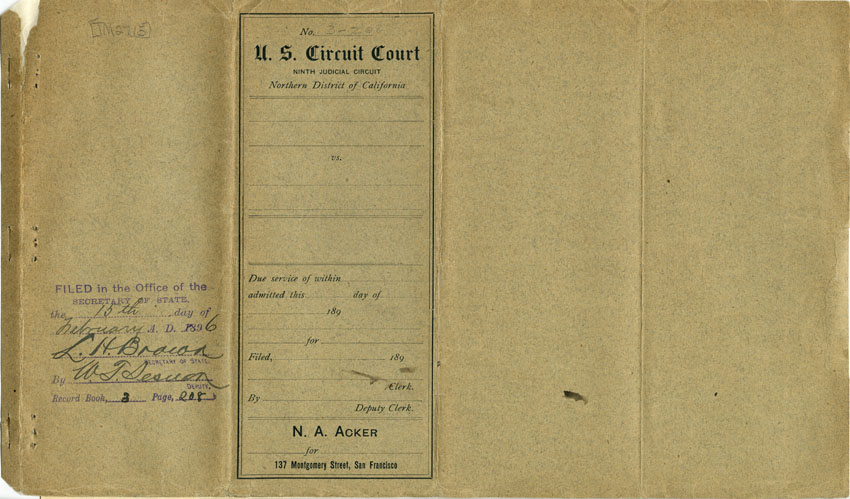 FILED in the Office of the
SECRETARY OF STATE,
the 15th day of
February A. D. 1896
L. H. Brown
SECRETARY OF STATE.
By W T
DEPUTY.
Record Book, 3 Page, 208
No. 3-208
U. S. Circuit Court
NINTH JUDICIAL CIRCUIT
Northern District of California
vs.
Due service of within
admitted this day of
189
for
Filed, 189
Clerk.
By
Deputy Clerk.
N. A. ACKER
for
137 Montgomery Street, San Francisco